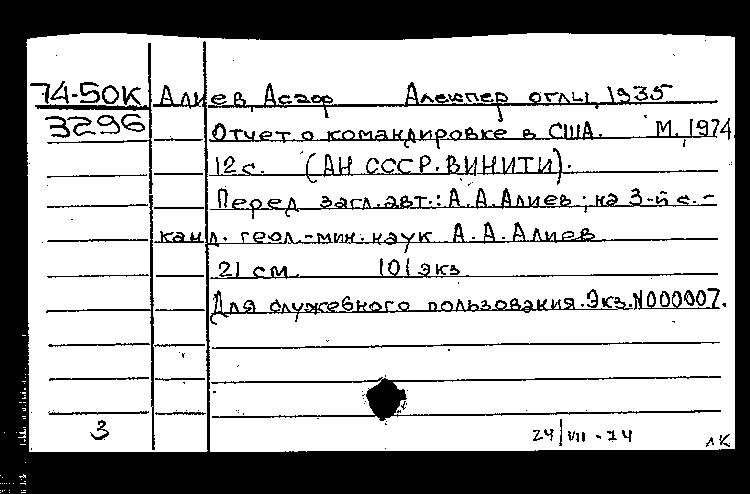 74-50К Алиев, Асаф Алекпер оглы, 1935
3296 Отчет о командировке в США. М., 1974
12 с. (АН СССР. ВИНИТИ).
Перед загл. авт.: А.А.Алиев; на 3-й с.-
канд. геол.-мин. наук А.А.Алиев
21 см. 101 экз.
Для служебного пользования. Экз. N000007.
3 24/VII-74 ЛК